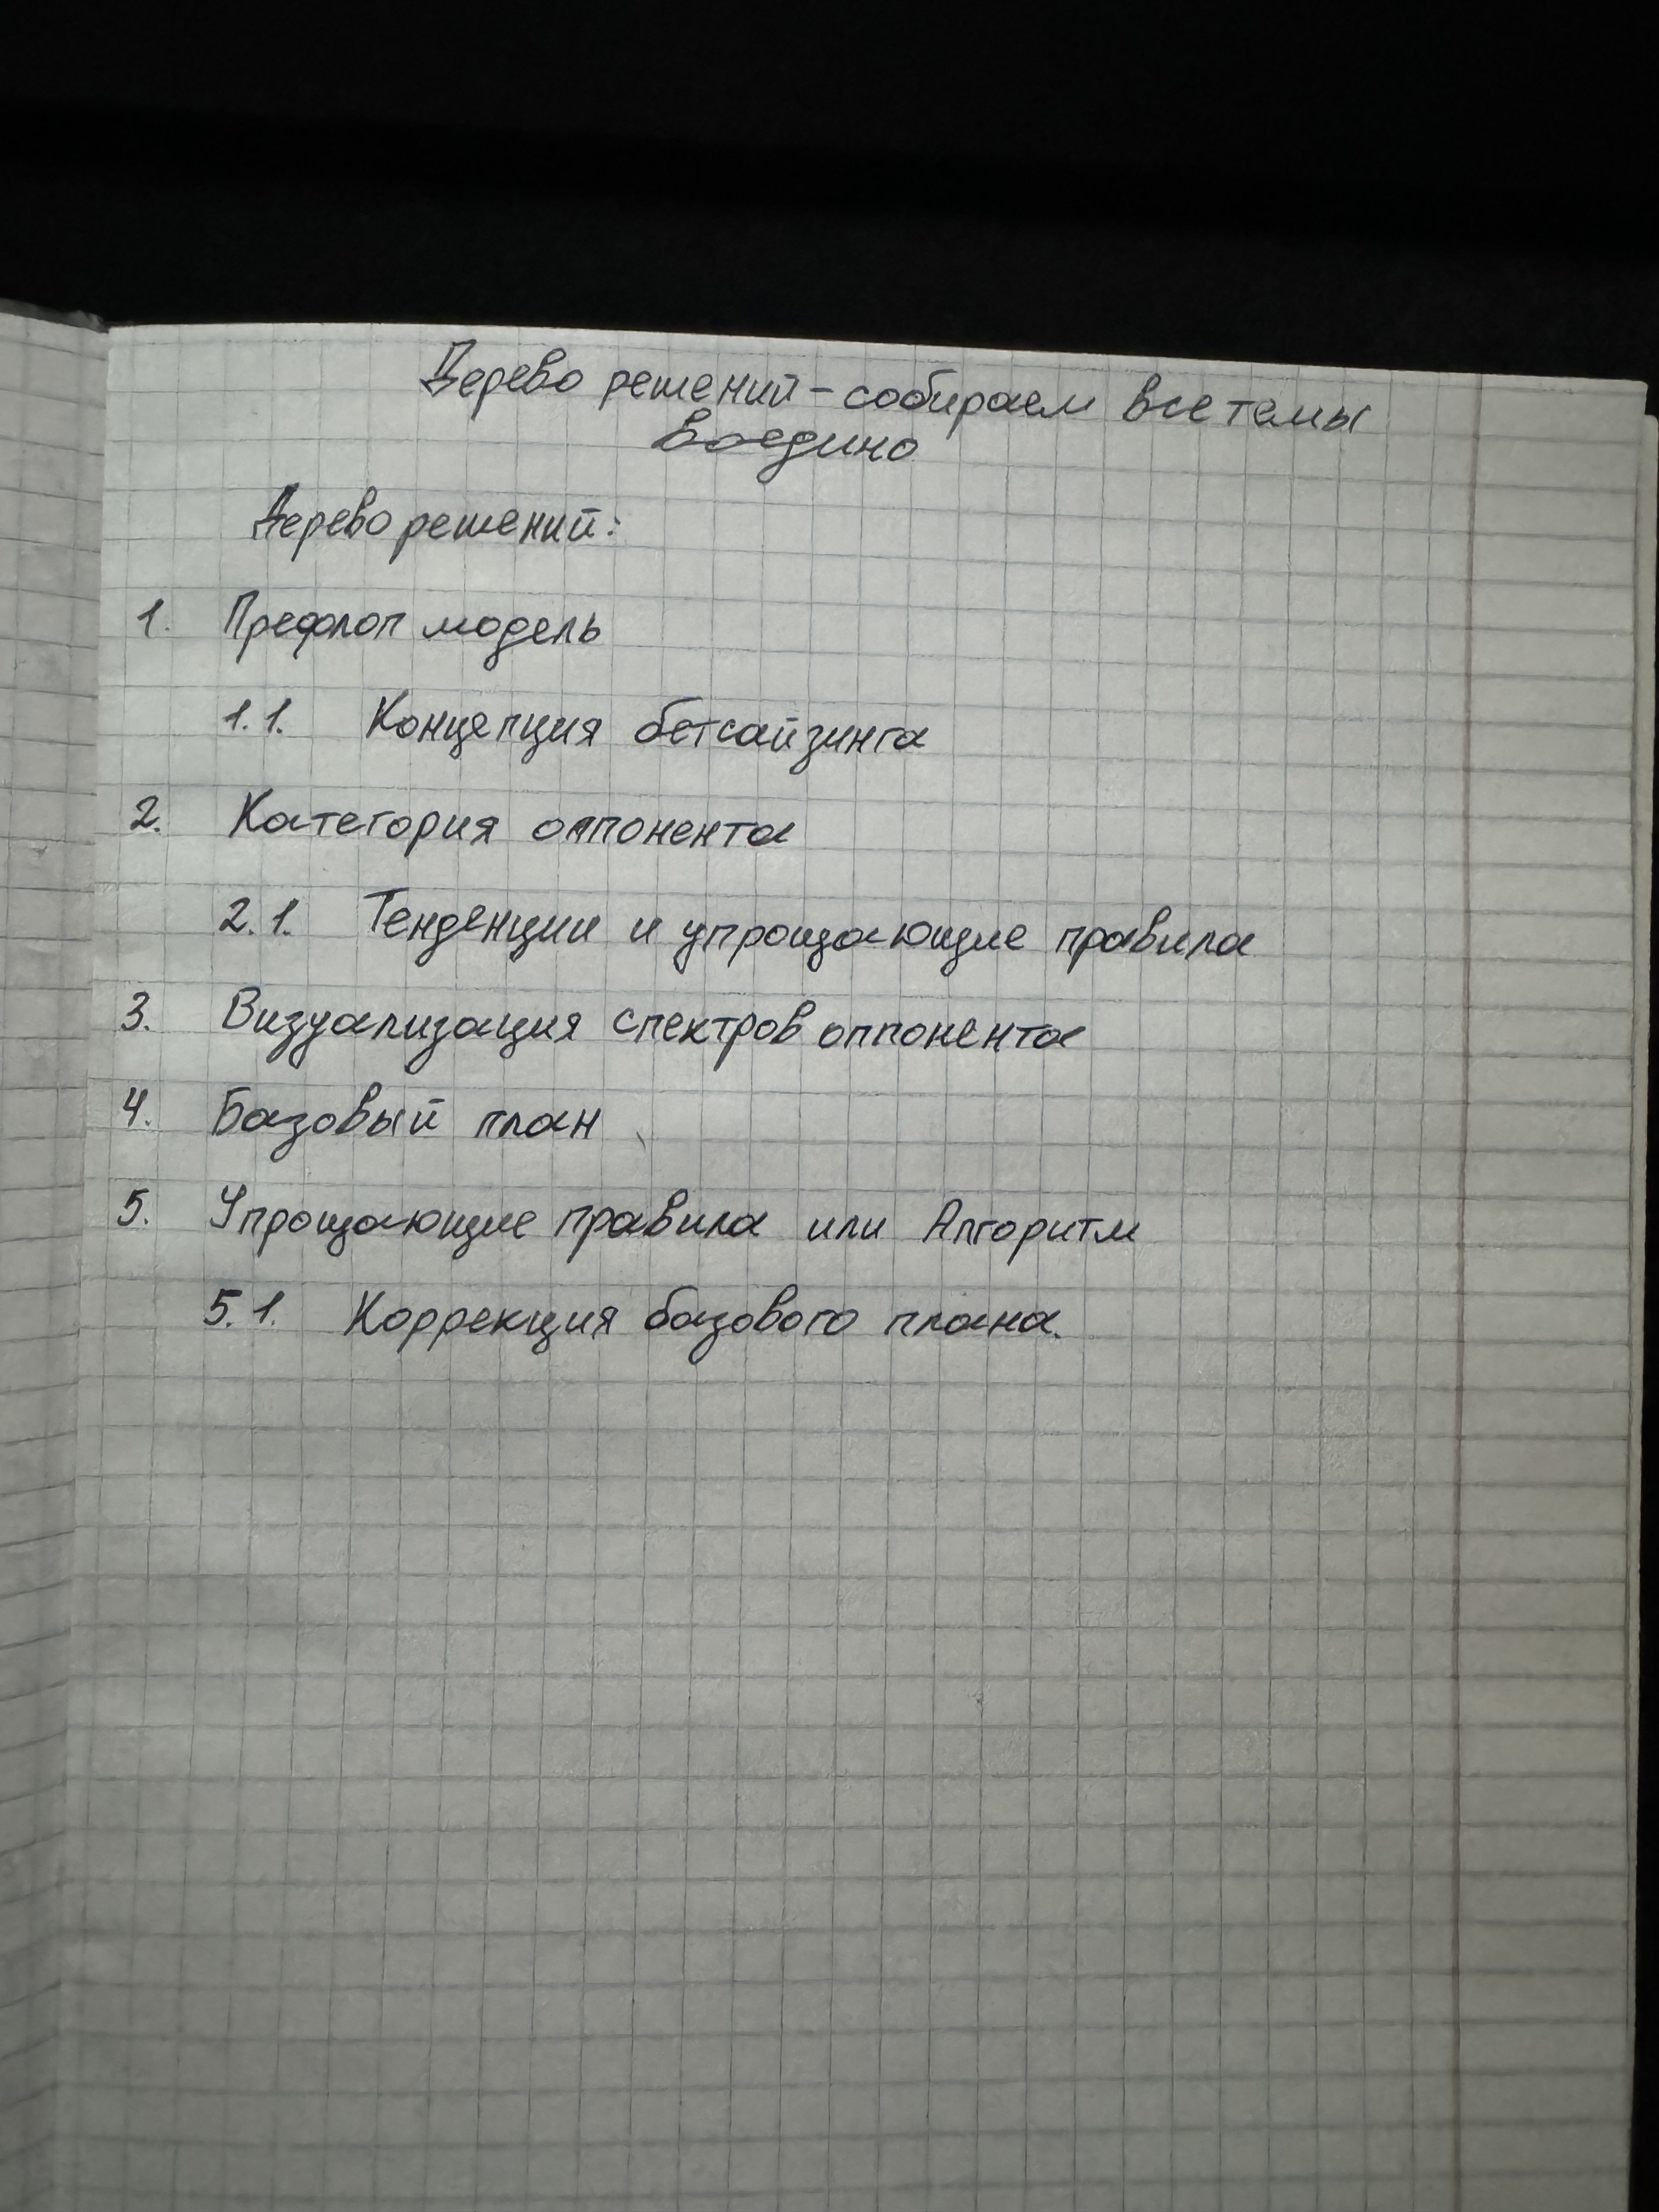 Дерево решений - собираем все темы
воедино
Дерево решений:
1. Префлоп модель
1.1. Концепция бетсайзинга
2. Категория оппонента
2.1. Тенденции и упрощающие правила
3. Визуализация спектров оппонента
4. Базовый план
5. Упрощающие правила или Алгоритм
5.1. Коррекция базового плана.